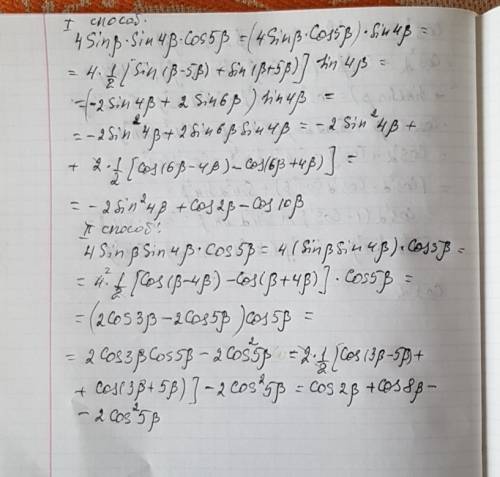 I способ.
4Sinβ·Sin4β·Cos5β = (4Sinβ·Cos5β)·Sin4β =
= 4·1/2[Sin(β-5β) + Sin(β+5β)] Sin4β =
= (-2Sin4β + 2Sin6β) Sin4β =
= -2Sin²4β + 2Sin6β Sin4β = -2Sin²4β +
+ 2·1/2[Cos(6β-4β) - Cos(6β+4β)] =
= -2Sin²4β + Cos2β - Cos10β
II способ:
4Sinβ Sin4β·Cos5β = 4(Sinβ Sin4β)·Cos5β =
= 4²·1/2[Cos(β-4β) - Cos(β+4β)]·Cos5β =
= (2Cos3β - 2Cos5β) Cos5β =
= 2Cos3β Cos5β - 2Cos²5β = 2·1/2[Cos(3β-5β) +
+ Cos(3β+5β)] - 2Cos²5β = Cos2β + Cos8β -
- 2Cos²5β